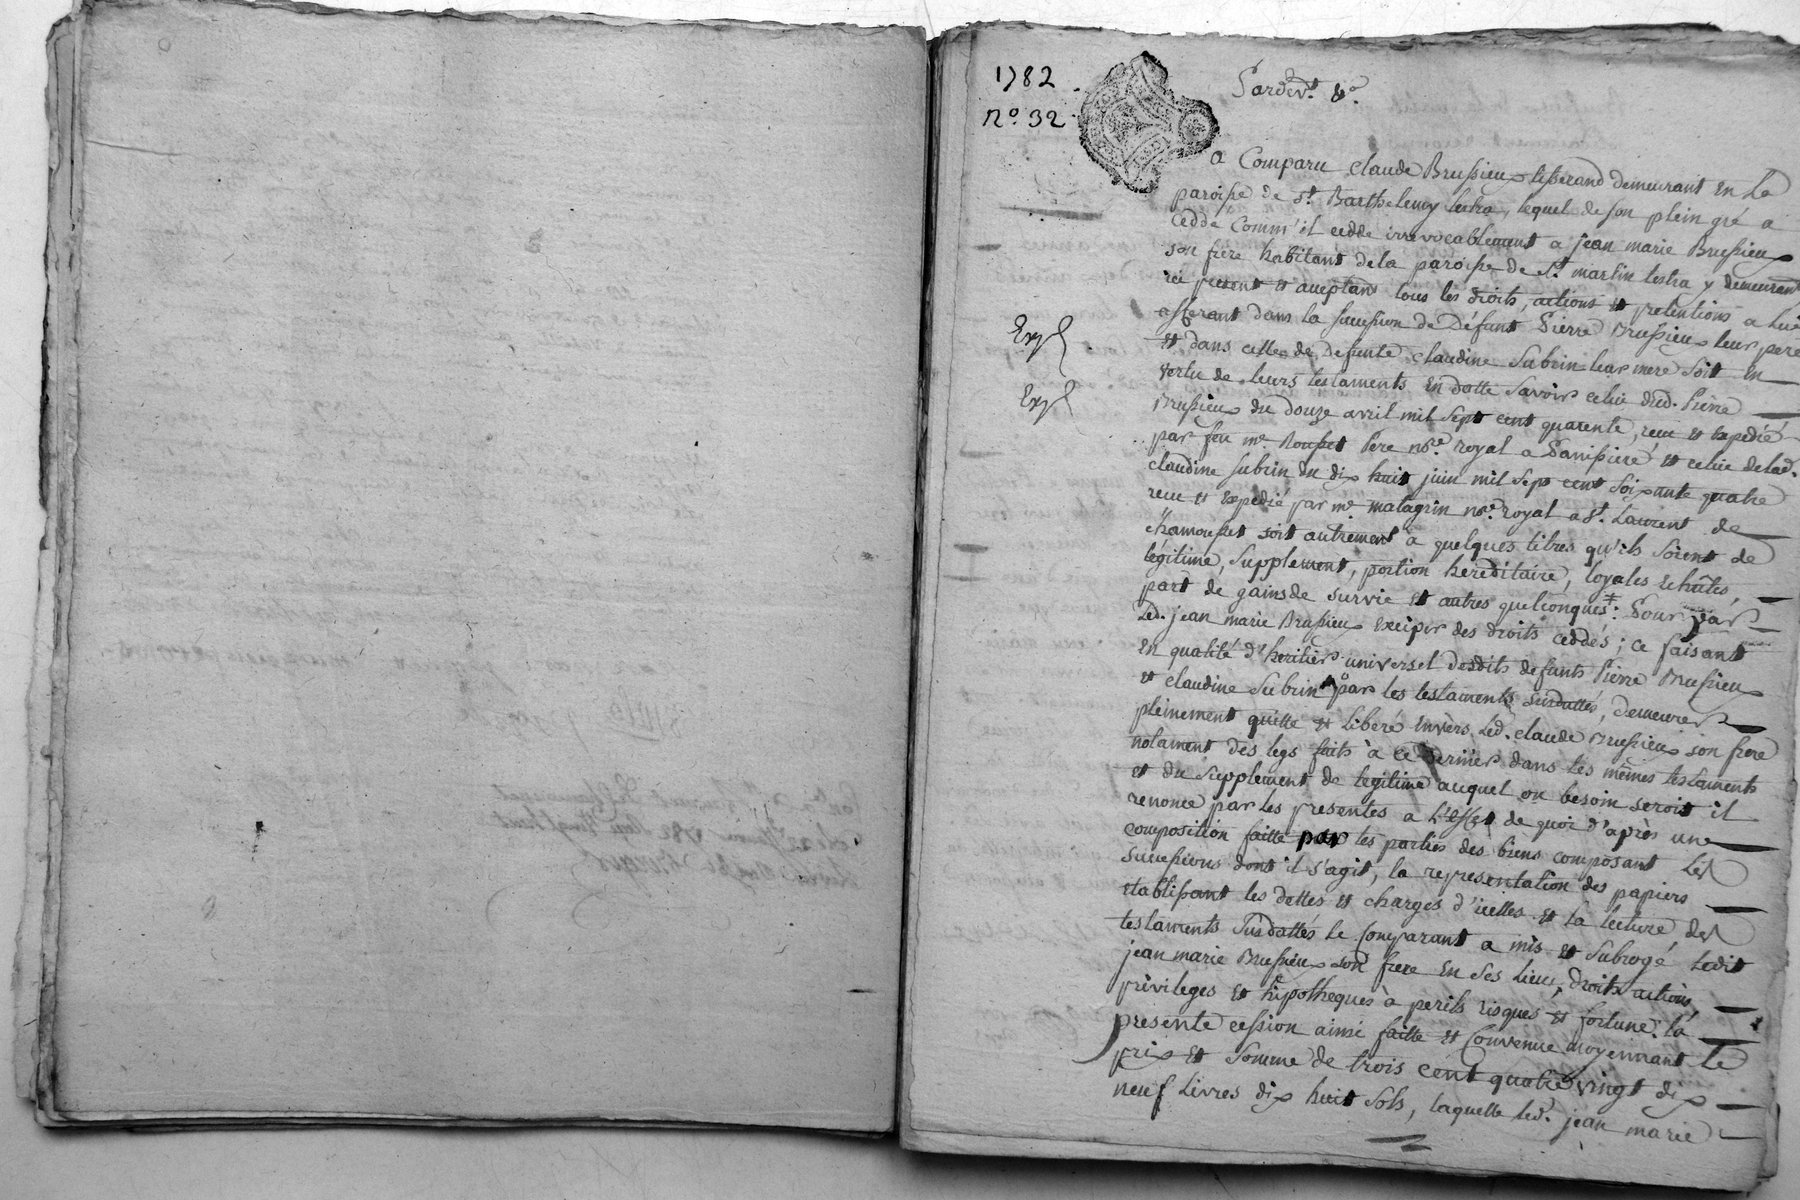 1782
n.º 32
Pardev.t &a.
a Comparu Claude Brussieux tisserand demeurant En la
paroisse de S.t Barthelemy lestra, lequel de son plein gré a
Ceddé Comm'il cedde irrevocablement a jean marie Brussieux
son frère habitant de la paroisse de S.t martin lestra y demeurant
ici present et acceptant tous les droits, actions et pretentions a lui
afferant dans la succession de Défunt Pierre Brussieux leur pere
Et dans celles de defunte Claudine Subrin leur mere soit En
vertu de leurs testaments En datte Savoir celui dud. Pierre
Brussieux du douze avril mil sept cent quarente, recu et Expedié
par feu m.e Rousset Pere no.re royal a Panissiere et celui de lad.
Claudine Subrin du dix huit juin mil sept cent soixante quatre
recu et Expedié par m.e matagrin no.re royal a S.t Laurent de
chamousset soit autrement a quelques titres qu'ils soient de
légitime, Supplement, portion hereditaire, loyales Echûtes,
part de gains de survie et autres quelconques ‡: Pour par
Led. jean marie Brussieux Exciper des droits ceddés; ce faisant
En qualité d'heritier universel desdits defunts Pierre Brussieux
et claudine Subrin par les testaments susdattés, demeurer
pleinement quitte et Liberé Envers Led. claude Brussieux son frere
notament des legs faits à ce dernier dans les mêmes testaments
et du Supplement de legitime auquel on besoin seroit il
renonce par les presentes a l'effet de quoi d'après une
composition faitte par les parties des biens composant Les
successions dont il s'agit, la representation des papiers
Etablissant les dettes et charges d'icelles et la lecture des
testaments Susdattés le Comparant a mis et Subrogé Ledit
jean marie Brussieux son frere En Ses Lieux, droits actions,
privileges et hipotheques à perils risques et fortune. la
presente cession ainsi faitte et Convenue moyennant le
prix et Somme de trois cent quatre vingt dix
neuf Livres dix huit Sols, laquelle led. jean marie
Exp.
Exp.